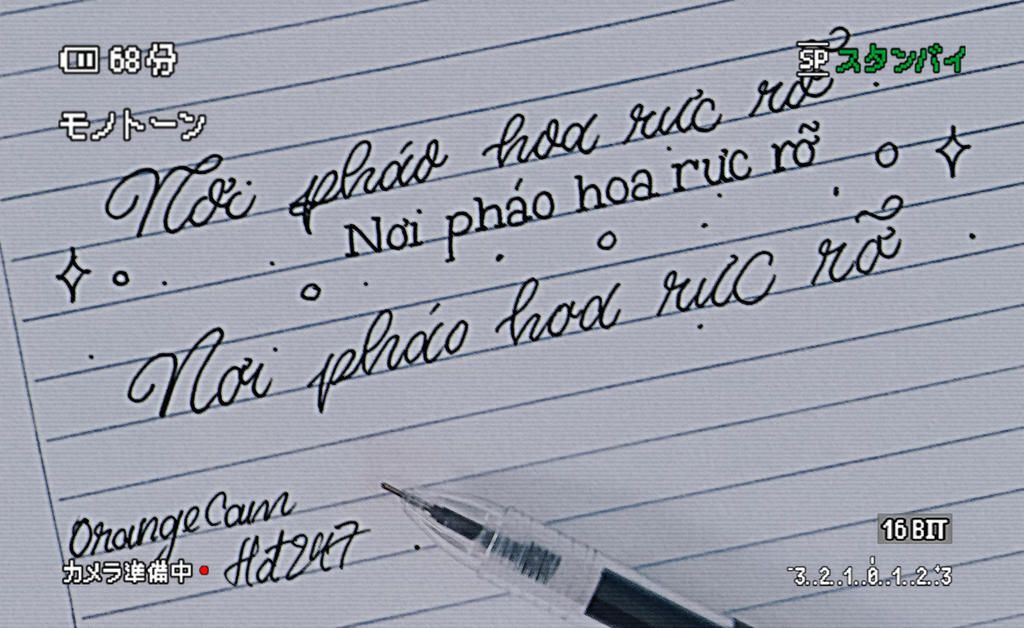 68分
SP スタンバイ
モノトーン
Nơi pháo hoa rực rỡ
Nơi pháo hoa rực rỡ
Nơi pháo hoa rực rỡ
OrangeCam
Hot247
カメラ準備中
16BIT
-3..2..1..0..1..2..3